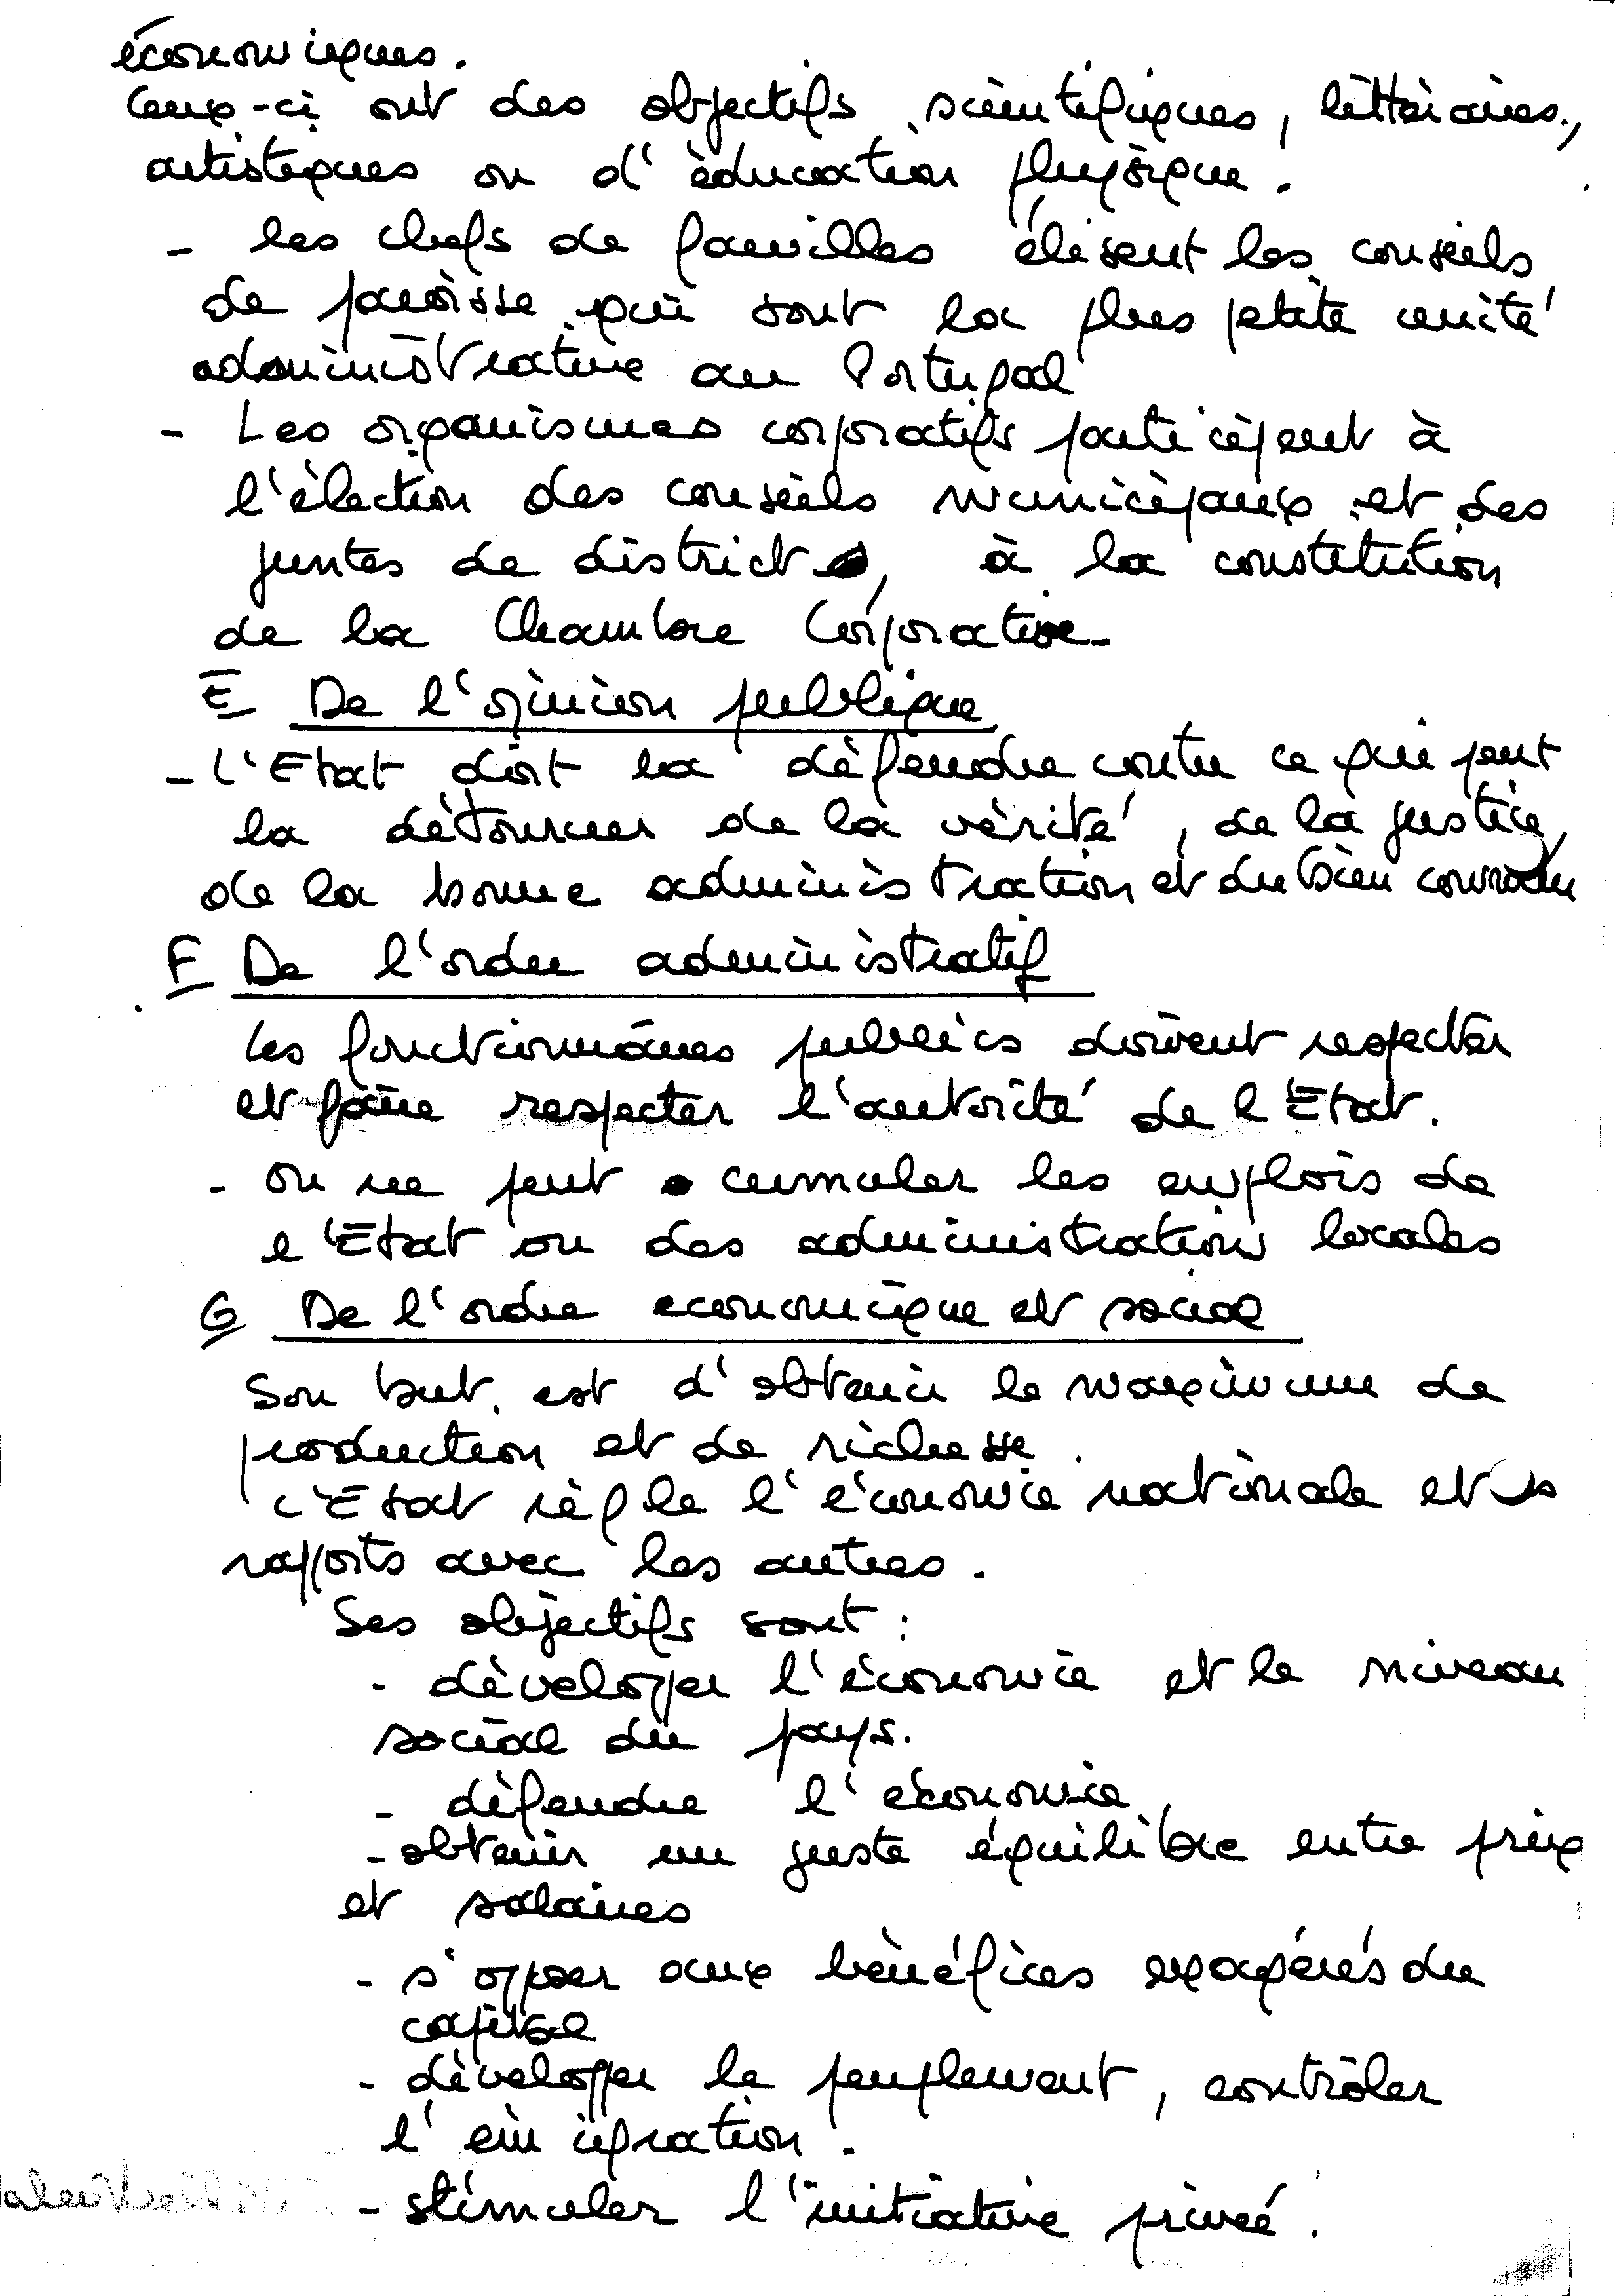 économiques.
Ceux-ci ont des objectifs scientifiques, littéraires,
artistiques ou d'éducation physique.
- les chefs de familles élisent les conseils
de paroisse qui sont la plus petite unité
administrative au Portugal
- Les organismes corporatifs participent à
l'élection des conseils municipaux et des
juntes de district, à la constitution
de la Chambre Corporative.
E De l'opinion publique
- L'Etat doit la défendre contre ce qui peut
la détourner de la vérité, de la justice,
de la bonne administration et du bien commun
F De l'ordre administratif
Les fonctionnaires publics doivent respecter
et faire respecter l'autorité de l'Etat.
- On ne peut cumuler les emplois de
l'Etat ou des administrations locales
G De l'ordre economique et social
Son but est d'obtenir le maximum de
production et de richesse.
L'Etat règle l'économie nationale et
rapports avec les autres.
Ses objectifs sont :
- développer l'économie et le niveau
social du pays.
- défendre l'économie
- obtenir un juste équilibre entre prix
et salaires
- s'opposer aux bénéfices exagérés du
capital
- développer le peuplement, contrôler
l'émigration.
- stimuler l'initiative privée.